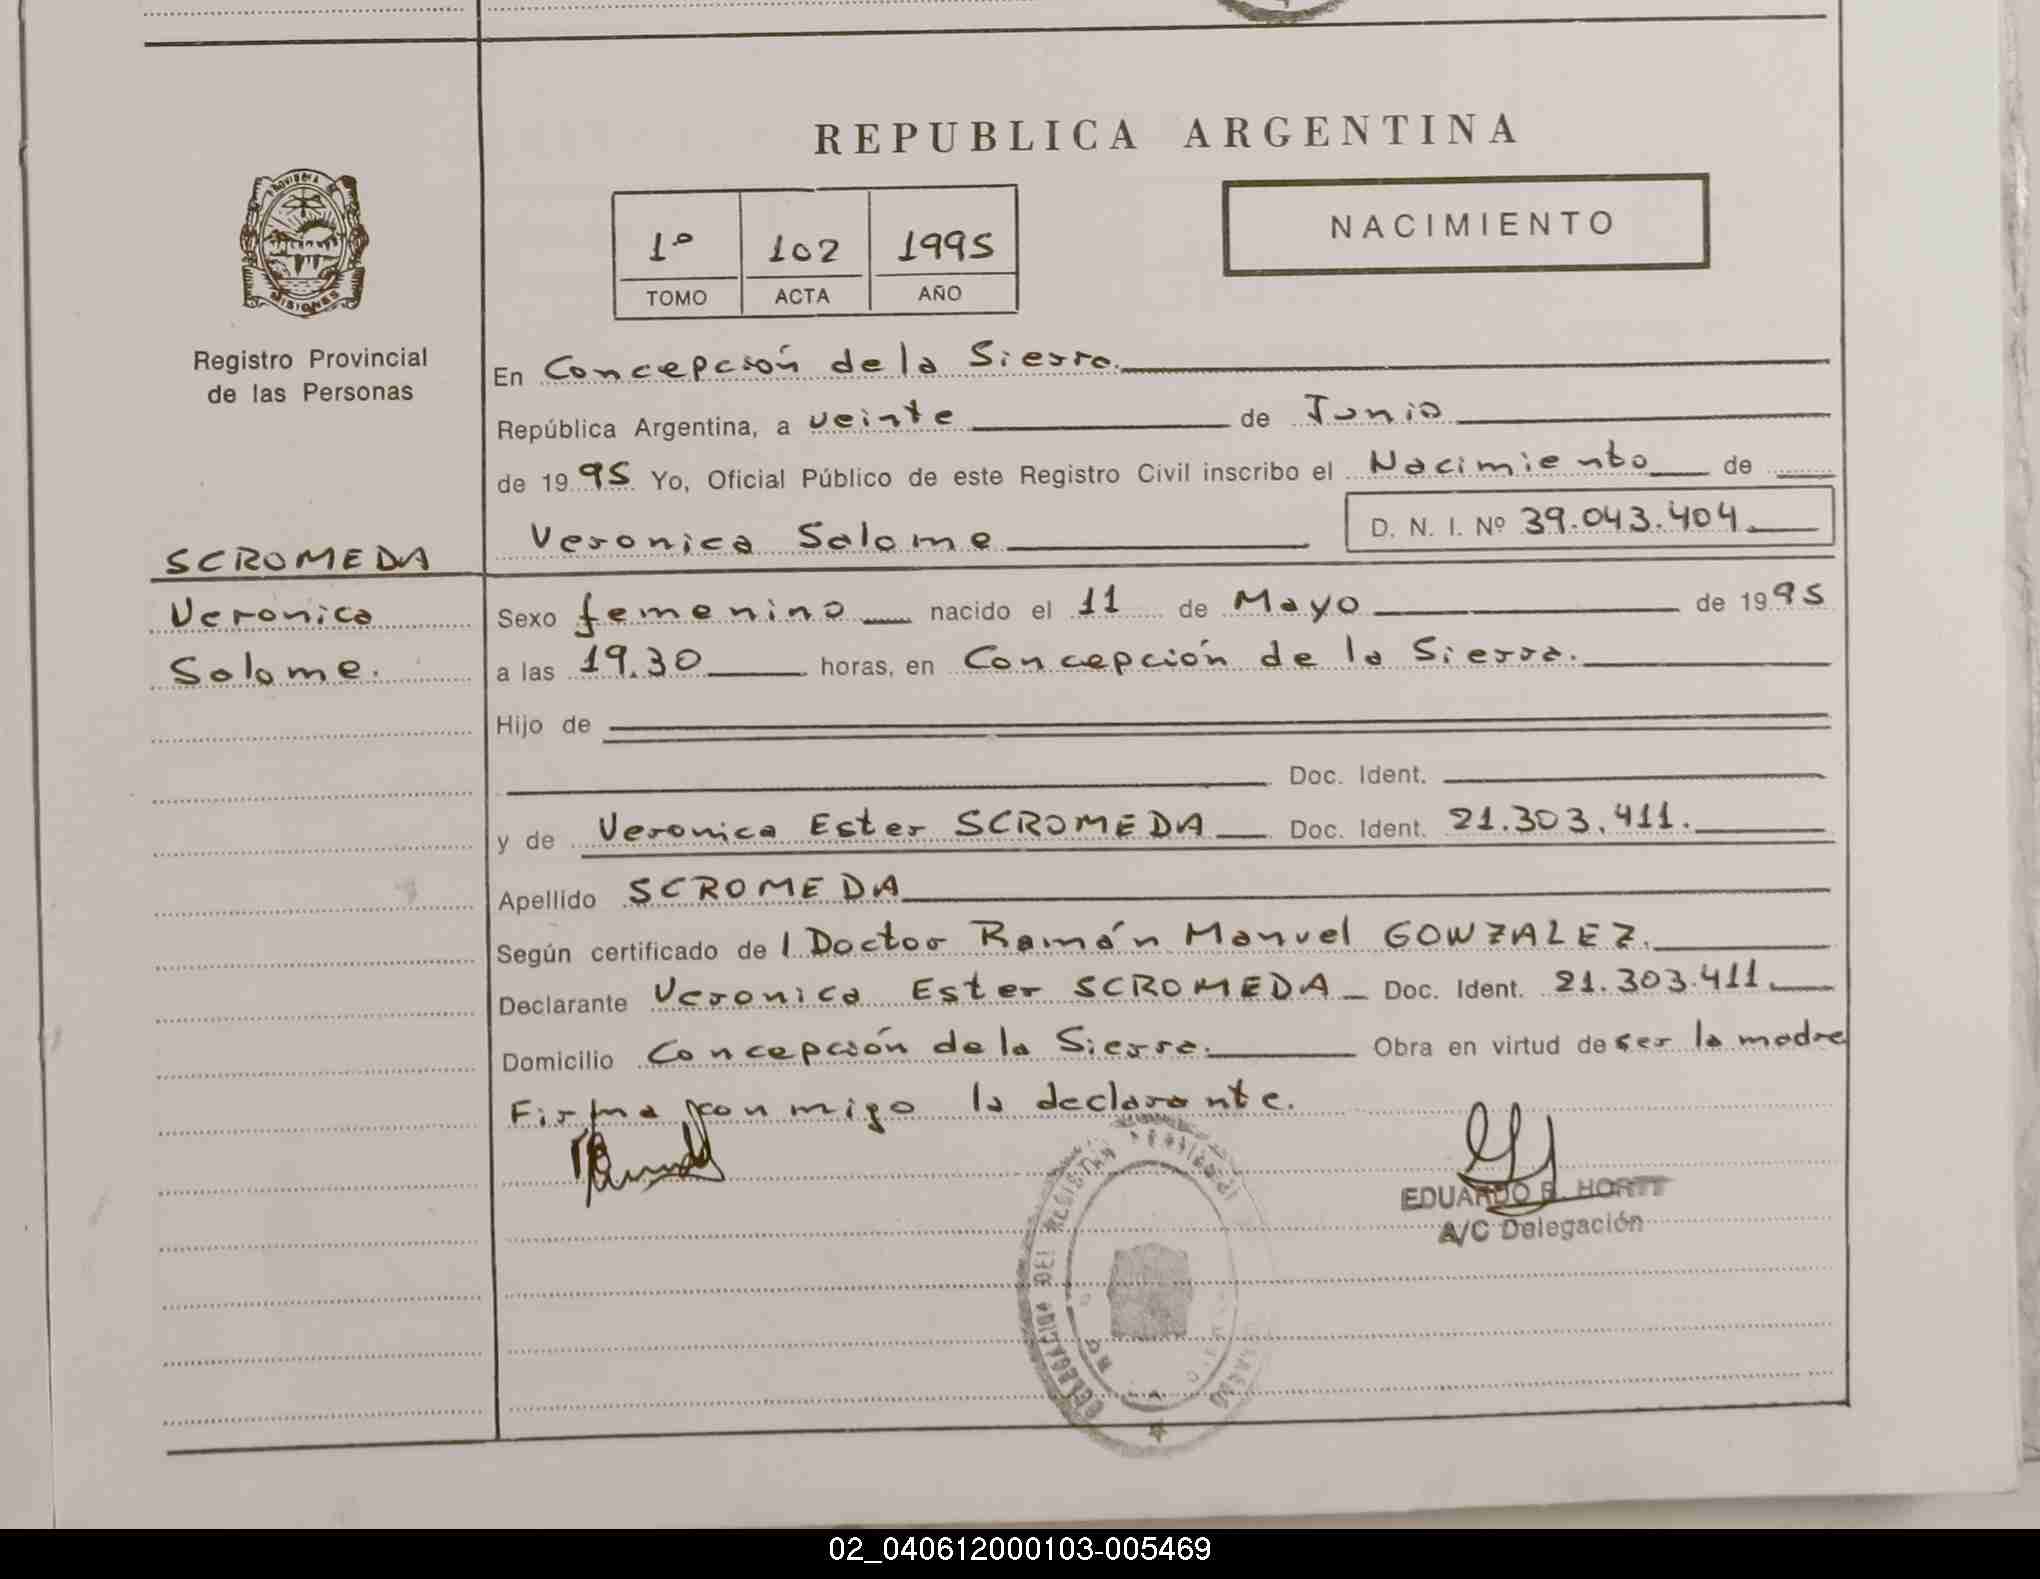 REPUBLICA ARGENTINA
PROVINCIA DE
MISIONES
Registro Provincial
de las Personas
1º 102 1995
TOMO ACTA AÑO
NACIMIENTO
En Concepción de la Sierra.
República Argentina, a veinte de Junio
de 1995 Yo, Oficial Público de este Registro Civil inscribo el Nacimiento de
Veronica Salome D. N. I. Nº 39.043.404.
SCROMEDA
Veronica
Salome.
Sexo femenino nacido el 11 de Mayo de 1995
a las 19.30 horas, en Concepción de la Sierra.
Hijo de
Doc. Ident.
y de Veronica Ester SCROMEDA Doc. Ident. 21.303.411.
Apellido SCROMEDA
Según certificado del Doctor Ramón Manuel GONZALEZ.
Declarante Veronica Ester SCROMEDA Doc. Ident. 21.303.411.
Domicilio Concepción de la Sierra. Obra en virtud de ser la madre
Firma conmigo la declarante.
DELEGACION DEL REGISTRO PROVINCIAL
EDUARDO R. HORTT
A/C Delegación
02_040612000103-005469